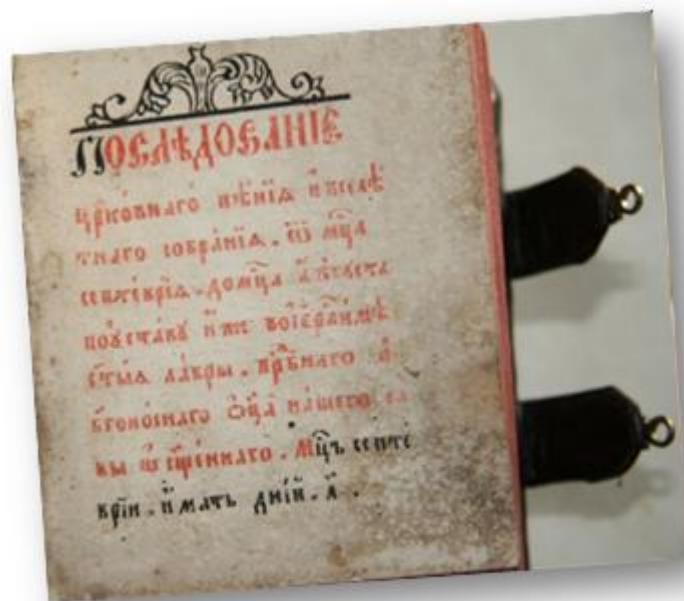 ПОСЛѢДОВАНІЕ
цр҃ковнаго пѣнїѧ и҆ вселѣ
тнаго собранїѧ. ѿ мц҃а
септеврїѧ. до мц҃а а҆ѵгꙋста
по ᲂу҆ставꙋ и҆же во і҆ерⷭ҇ли́мѣ
ст҃ыѧ лавры. прпⷣбнаго и҆
бг҃оноснаго ѻ҆ц҃а нашего са
вы ѡ҆сщ҃еннаго. Мцⷭ҇ъ септе́
врїи. и҆мать днїй. л҃.